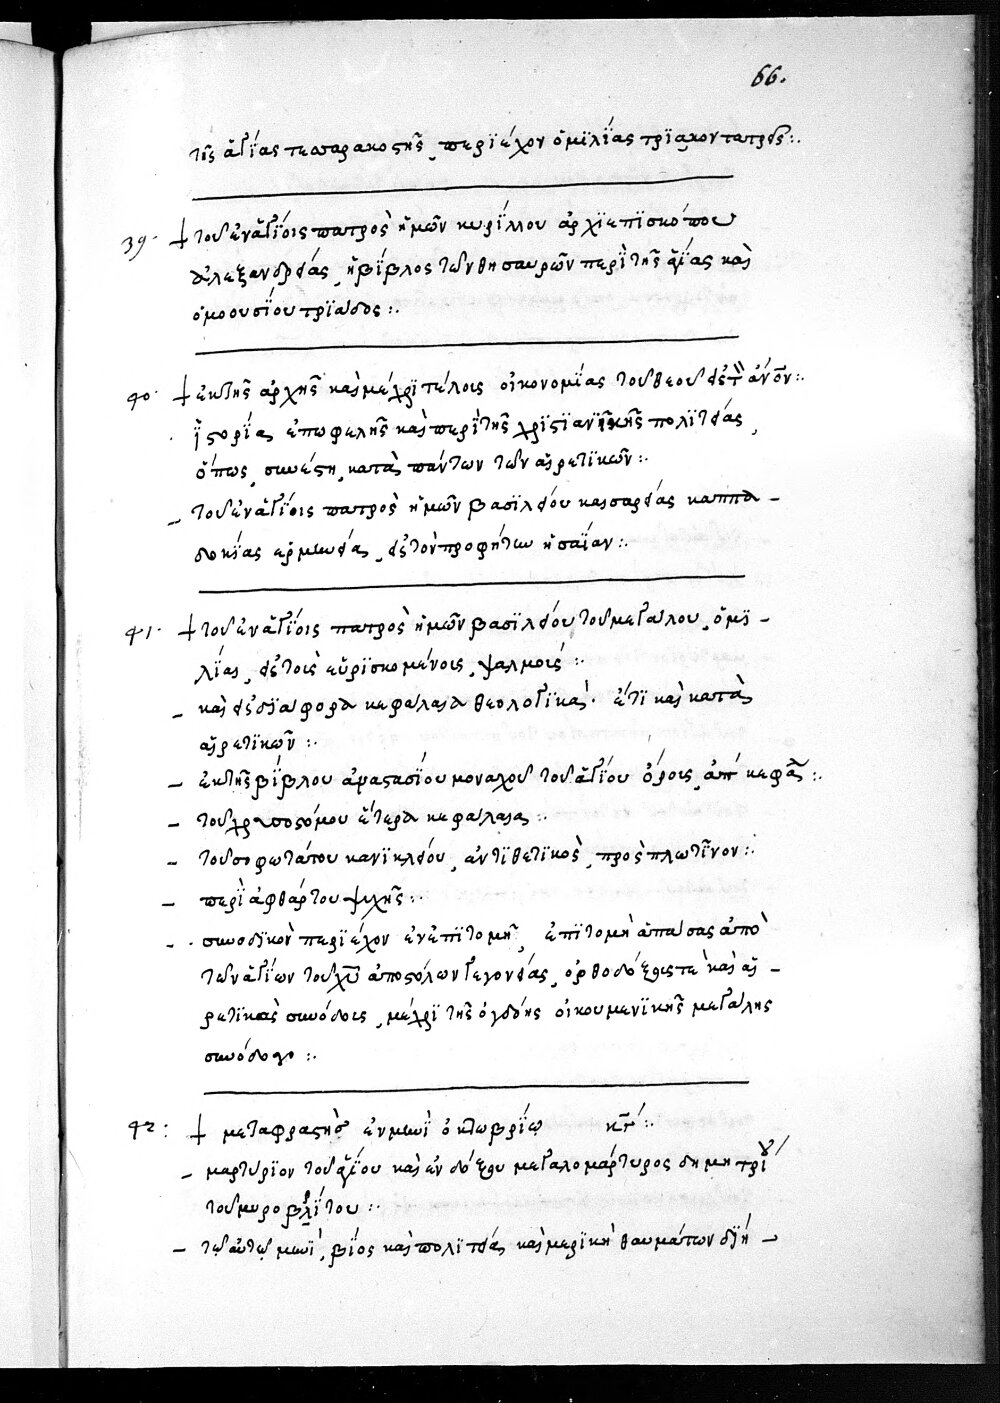 66.
τῆς ἁγίας τεσσαρακοστῆς, περιέχον ὁμιλίας τριακοντατρεῖς:.
39. † τοῦ ἐν ἁγίοις πατρὸς ἡμῶν κυρίλλου ἀρχιεπισκόπου
ἀλεξανδρείας, ἡ βίβλος τῶν θησαυρῶν περὶ τῆς ἁγίας καὶ
ὁμοουσίου τριάδος:.
40. † ἐκ τῆς ἀρχῆς καὶ μέχρι τέλοις οἰκονομίας τοῦ θεοῦ εἰς τ ἀνον:.
ἱστορία ἐπωφελὴς καὶ περὶ τῆς χριστιανικῆς πολιτείας,
ὅπως, συνέστη, κατὰ πάντων τῶν αἱρετικῶν:.
- τοῦ ἐν ἁγίοις πατρὸς ἡμῶν βασιλείου καισαρείας καππα-
δοκίας ἑρμηνεία, εἰς τὸν προφήτην ἡσαΐαν:.
41. † τοῦ ἐν ἁγίοις πατρὸς ἡμῶν βασιλείου τοῦ μεγάλου, ὁμι-
λίαι, εἰς τοῖς εὑρισκομένοις, ψαλμοῖς:.
- καὶ εἰς διάφορα κεφάλαια θεολογικά. ἔτι καὶ κατὰ
αἱρετικῶν:.
- ἐκ τῆς βίβλου ἀναστασίου μοναχοῦ τοῦ ἁγίου ὄροις, ἀπὸ κεφα:.
- τοῦ χρυσοστόμου ἕτερα κεφάλαια:.
- τοῦ σοφωτάτου κανικλείου, ἀντιθετικὸς, πρὸς πλωτῖνον:.
- περὶ ἀφθάρτου ψυχῆς:.
- συνοδικὸν περιέχον ἐν ἐπιτομῇ, ἐπιτομὴ ἁπάσας ἀπὸ
τῶν ἁγίων τοῦ χυ ἀποστόλων γεγονείας, ὀρθοδόξοις τε καὶ αἱ-
ρετικὰς συνόδοις, μέχρι τῆς ὀγδόης οἰκουμενικῆς μεγάλης
συνόδου:.
42: † μεταφραστὴς ἐν μηνὶ ὀκτωβρίῳ κϛ:.
- μαρτύριον τοῦ ἁγίου καὶ ἐνδόξου μεγαλομάρτυρος δημητρίου
τοῦ μυροβλίτου:.
- τῷ αὐτῷ μηνί, βίος καὶ πολιτεία καὶ μερικὴ θαυμάτων διή-